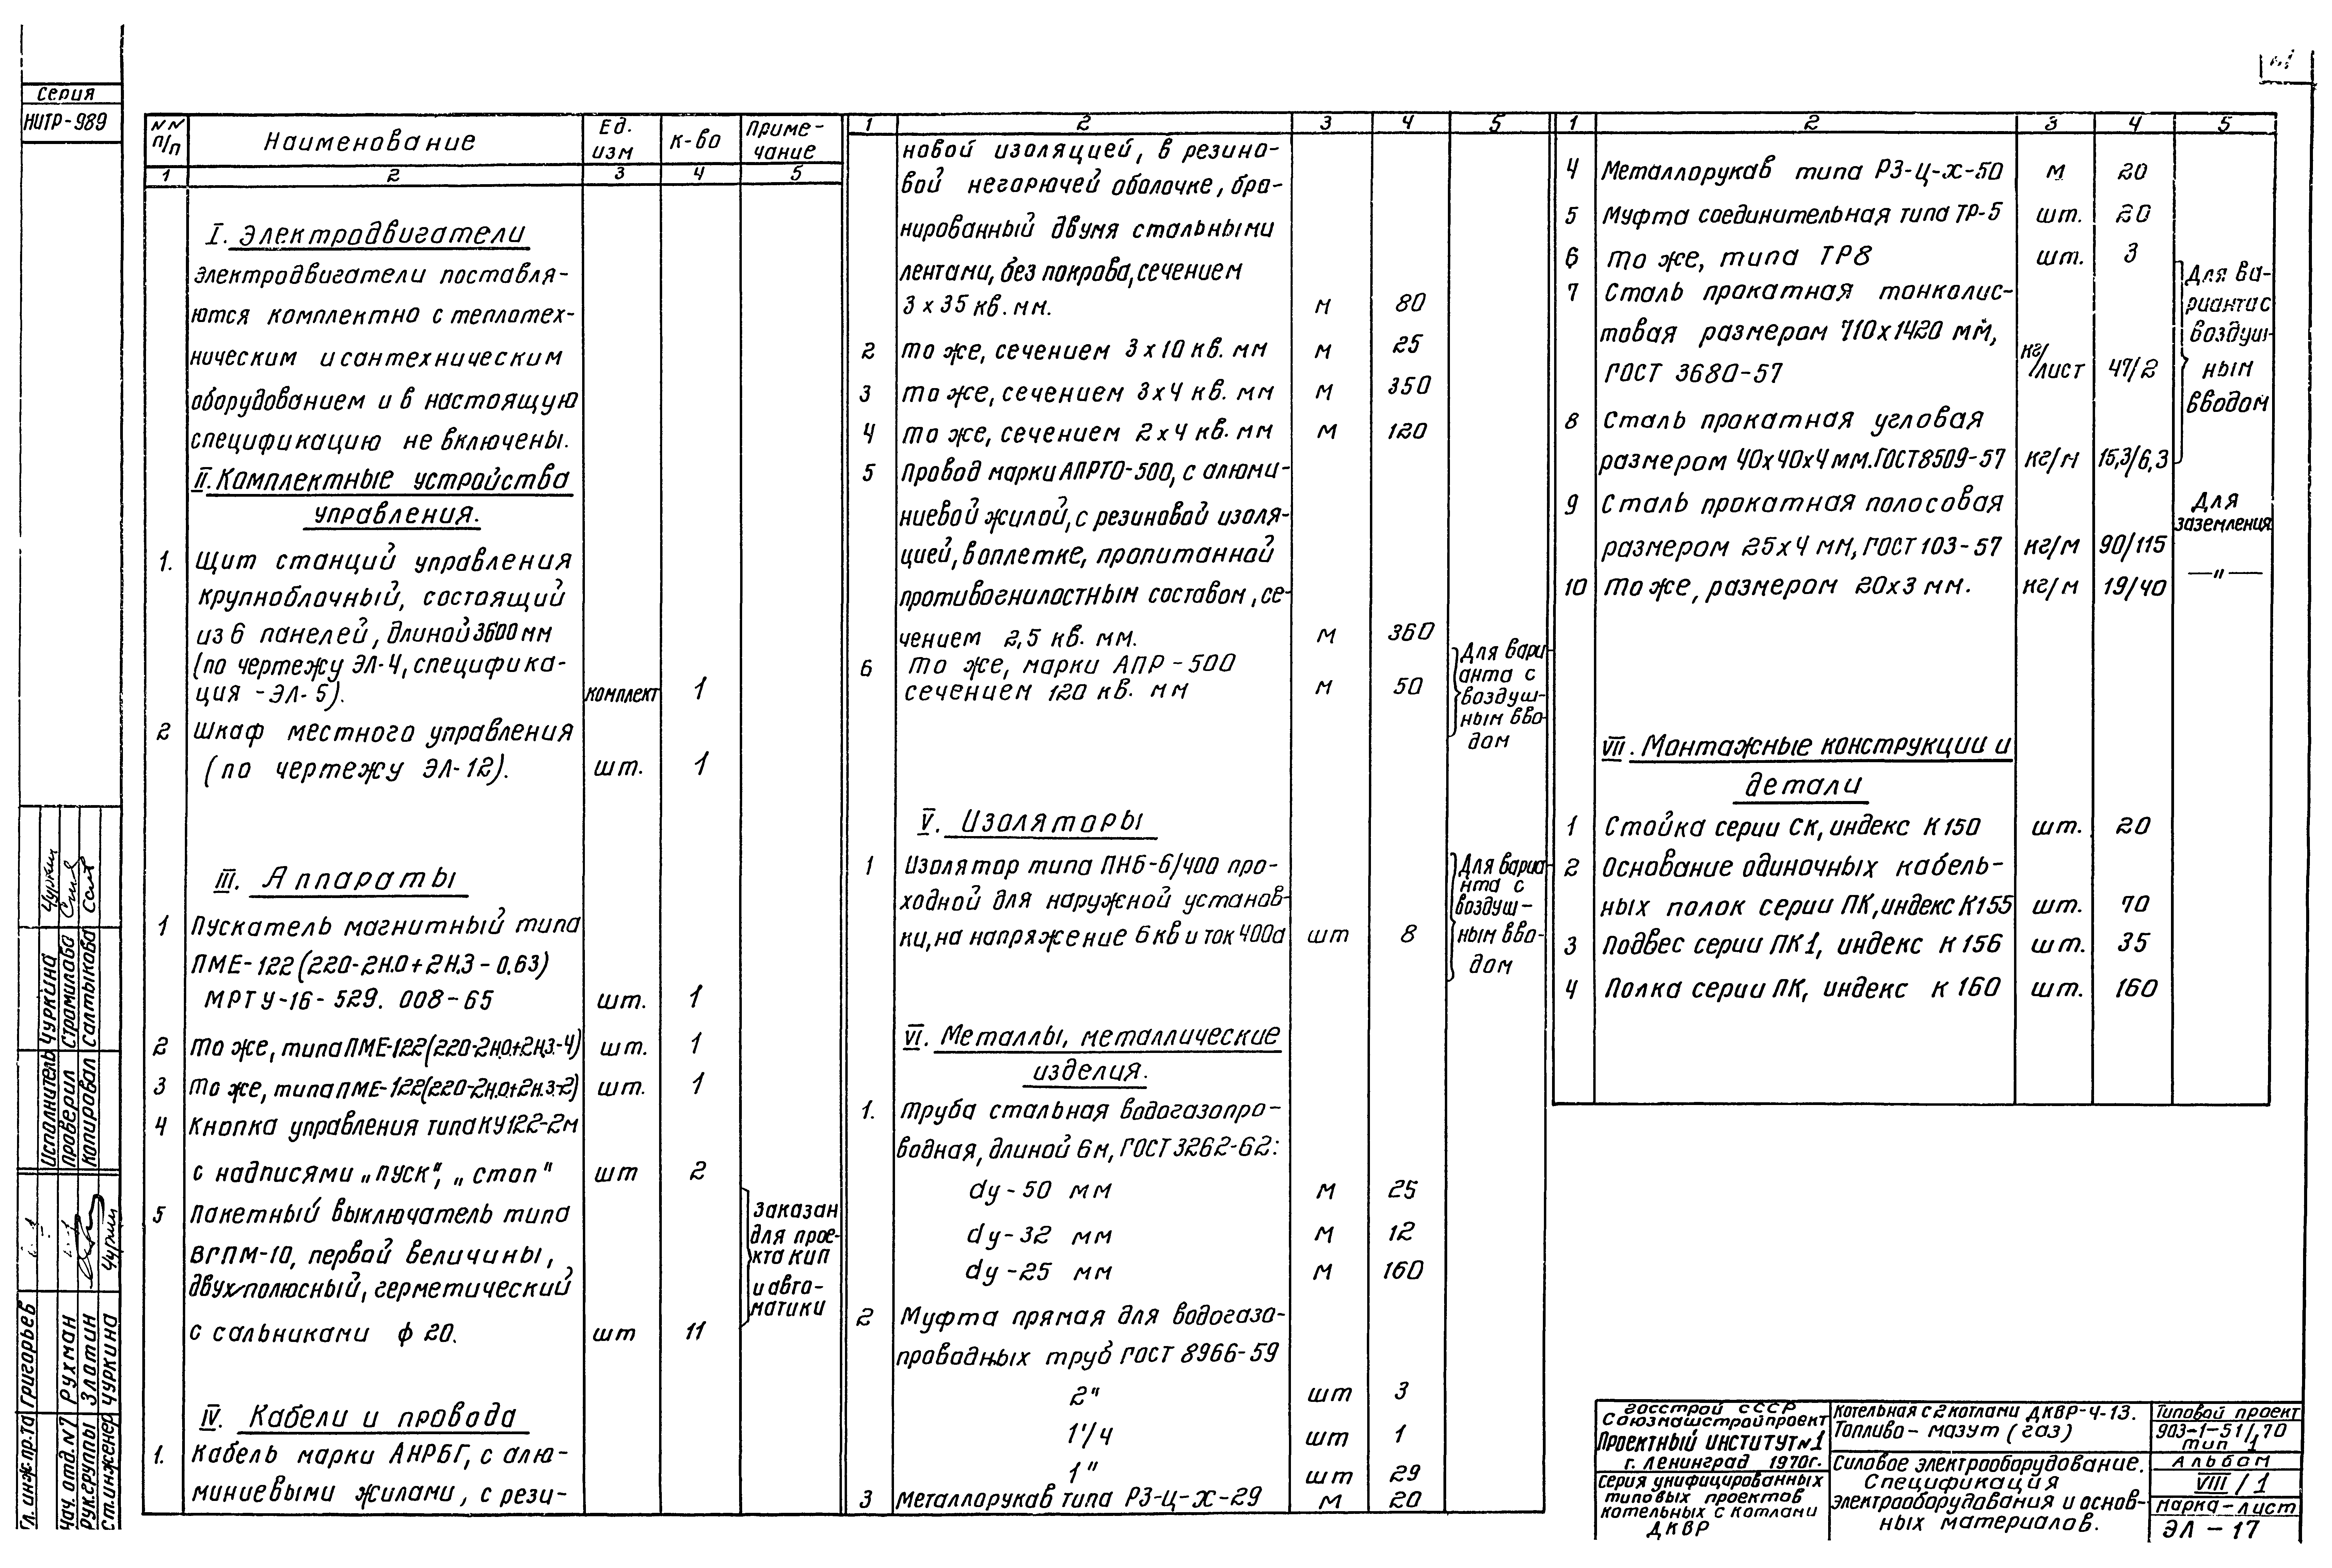 Серия
НИТР-989
NN п/п
Наименование
Ед. изм
К-во
Приме-
чание
1 2 3 4 5
I. Электродвигатели
Электродвигатели поставля-
ются комплектно с теплотех-
ническим и сантехническим
оборудованием и в настоящую
спецификацию не включены.
II. Комплектные устройства
управления.
1. Щит станций управления
крупноблочный, состоящий
из 6 панелей, длиной 3600 мм
(по чертежу ЭЛ-4, специфика-
ция - ЭЛ-5). комплект 1
2 Шкаф местного управления
(по чертежу ЭЛ-12). шт. 1
III. Аппараты
1 Пускатель магнитный типа
ПМЕ-122 (220-2Н.О+2Н.З-0.63)
МРТУ-16-529.008-65 шт. 1
2 То же, типа ПМЕ-122(220-2Н.О+2Н.З.-4) шт. 1
3 То же, типа ПМЕ-122(220-2Н.О+2Н.З-2) шт. 1
4 Кнопка управления типа КУ122-2м
с надписями „пуск", „стоп" шт 2
5 Пакетный выключатель типа
ВГПМ-10, первой величины,
двухполюсный, герметический
с сальниками ф 20. шт 11
Заказан
для прое-
кта КИП
и авто-
матики
IV. Кабели и провода
1. Кабель марки АНРБГ, с алю-
миниевыми жилами, с рези-
1 2 3 4 5
новой изоляцией, в резино-
вой негорючей оболочке, бро-
нированный двумя стальными
лентами, без покрова, сечением
3 х 35 кв. мм. м 80
2 То же, сечением 3 х 10 кв. мм м 25
3 То же, сечением 3х4 кв. мм м 350
4 То же, сечением 2х4 кв. мм м 120
5 Провод марки АПРТО-500, с алюми-
ниевой жилой, с резиновой изоля-
цией, в оплетке, пропитанной
противогнилостным составом, се-
чением 2,5 кв. мм. м 360
6 То же, марки АПР-500
сечением 120 кв. мм м 50
Для вари
анта с
воздуш-
ным вво-
дом
V. Изоляторы
1 Изолятор типа ПНБ-6/400 про-
ходной для наружной установ-
ки, на напряжение 6 кв и ток 400а шт 8
Для вариа
нта с
воздуш-
ным вво-
дом
VI. Металлы, металлические
изделия.
1. Труба стальная водогазопро-
водная, длиной 6м, ГОСТ 3262-62:
dy-50 мм м 25
dy-32 мм м 12
dy-25 мм м 160
2 Муфта прямая для водогазо-
проводных труб ГОСТ 8966-59
2" шт 3
1 1/4 шт 1
1" шт 29
3 Металлорукав типа РЗ-Ц-Х-29 м 20
1 2 3 4 5
4 Металлорукав типа РЗ-Ц-Х-50 м 20
5 Муфта соединительная типа ТР-5 шт. 20
6 То же, типа ТР8 шт. 3
7 Сталь прокатная тонколис-
товая размером 710х1420 мм,
ГОСТ 3680-57 кг/лист 47/2
8 Сталь прокатная угловая
размером 40х40х4 мм. ГОСТ 8509-57 кг/м 15,3/6,3
Для ва-
рианта с
воздуш-
ным
вводом
9 Сталь прокатная полосовая
размером 25х4 мм, ГОСТ 103-57 кг/м 90/115
Для
заземления
10 То же, размером 20х3 мм. кг/м 19/40 —"—
VII. Монтажные конструкции и
детали
1 Стойка серии СК, индекс К150 шт. 20
2 Основание одиночных кабель-
ных полок серии ПК, индекс К155 шт. 70
3 Подвес серии ПК1, индекс К 156 шт. 35
4 Полка серии ПК, индекс К 160 шт. 160
Исполнитель Чуркина
Проверил Страмилова
Копировал Салтыкова
Гл. инж. пр-та Григорьев
Нач. отд. N7 Рухман
Рук. группы Златин
Ст. инженер Чуркина
Госстрой СССР
Союзмашстройпроект
Проектный институт N1
г. Ленинград 1970г.
Серия унифицированных
типовых проектов
котельных с котлами
ДКВР
Котельная с 2 котлами ДКВР-4-13.
Топливо - мазут (газ)
Силовое электрооборудование.
Спецификация
электрооборудования и основ-
ных материалов.
Типовой проект
903-1-51/70
тип 1
Альбом
VIII/1
Марка-лист
ЭЛ-17